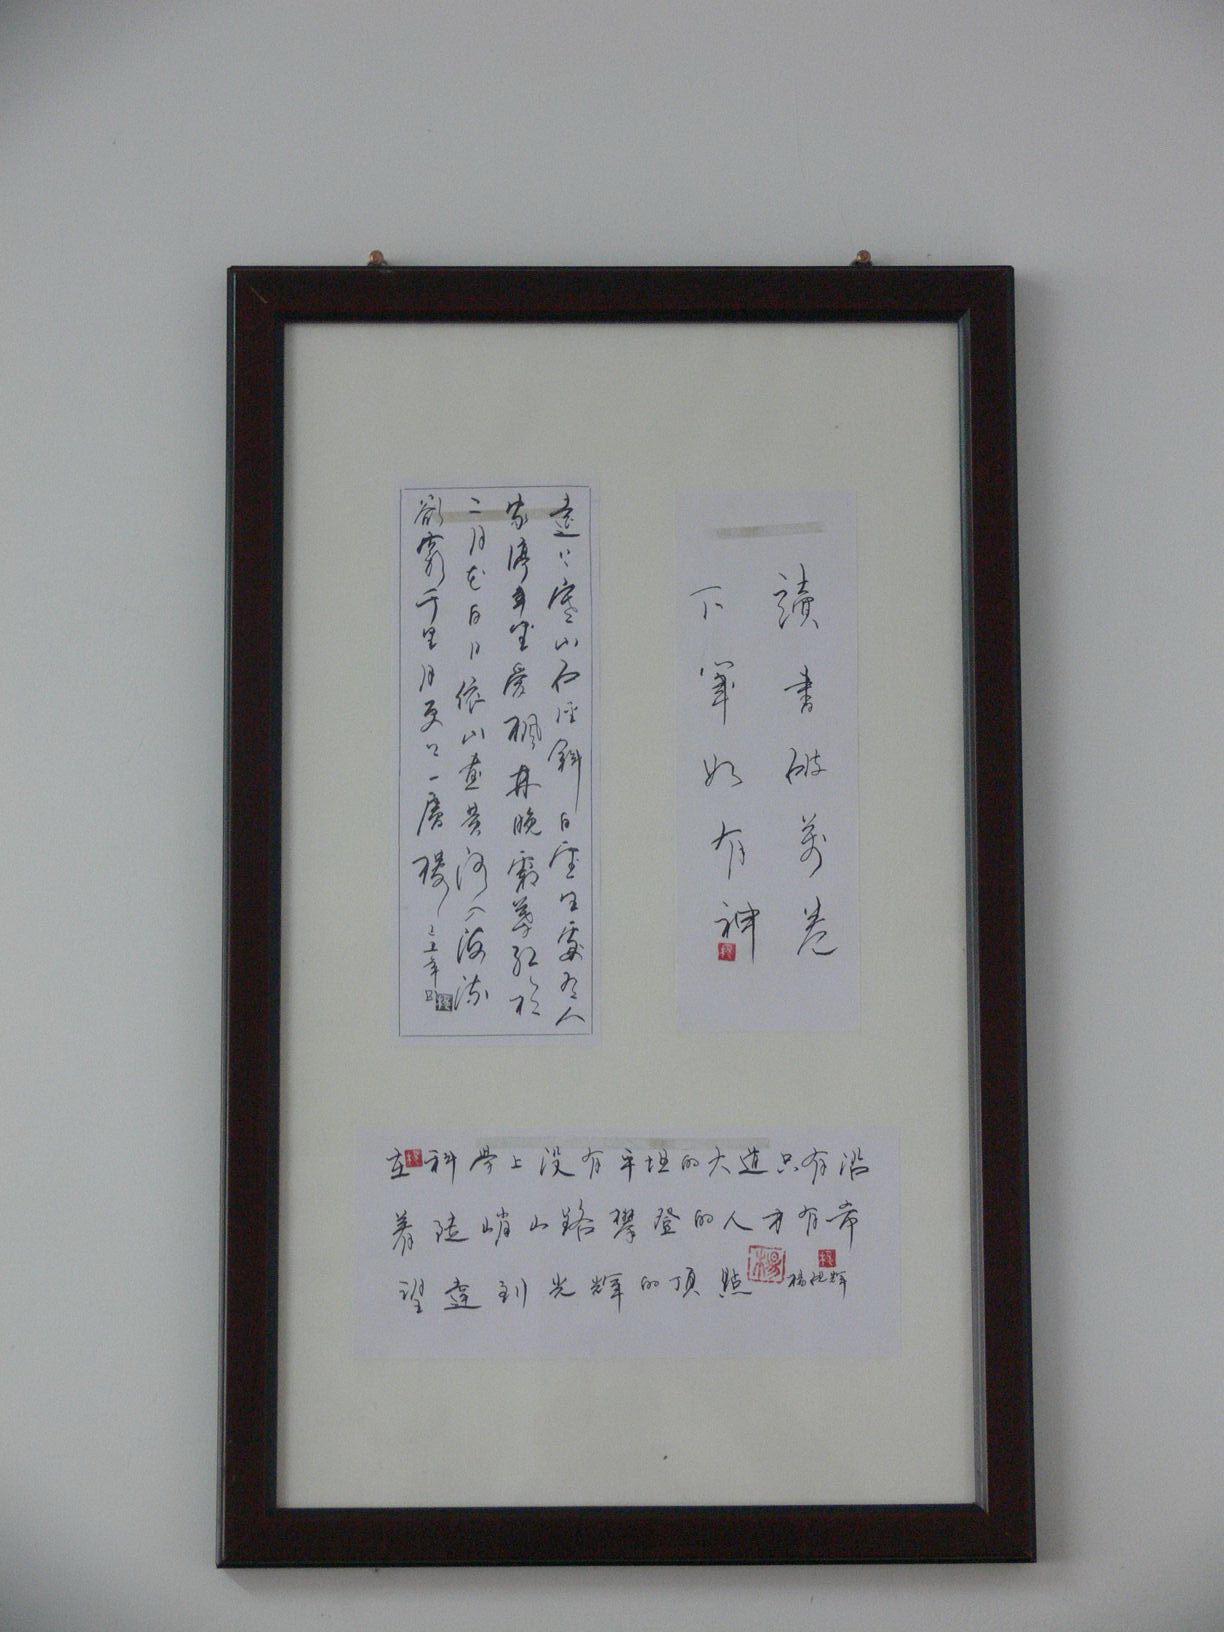 讀書破萬卷
下筆如有神
遠上寒山石徑斜白雲生處有人
家停車坐愛楓林晚霜葉紅於
二月花白日依山盡黃河入海流
欲窮千里目更上一層樓
己丑年
在科學上沒有平坦的大道只有沿
着陡峭山路攀登的人才有希
望達到光輝的頂點
楊